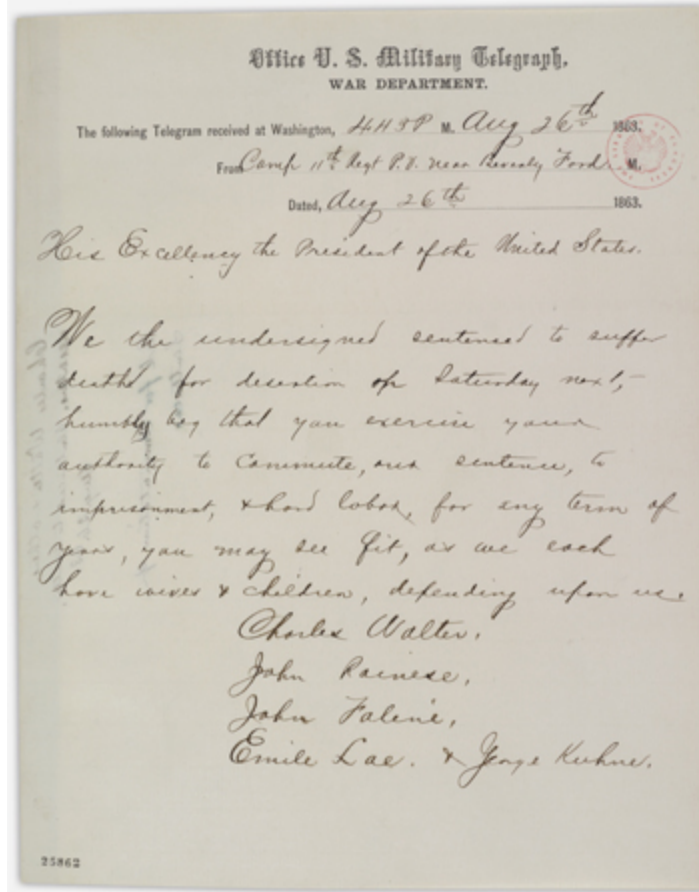 Office U. S. Military Telegraph,
WAR DEPARTMENT.
The following Telegram received at Washington, 445 P M. Aug 26th 1863.
From Camp 11th Regt P.V. near Beverly Ford M.
Dated, Aug 26th 1863.
His Excellency the President of the United States.
We the undersigned sentenced to suffer
death for desertion on Saturday next,
humbly beg that you exercise your
authority to commute, our sentence, to
imprisonment, & hard labor, for any term of
years, you may see fit, as we each
have wives & children, depending upon us.
Charles Walter,
John Rainese,
John Faline,
Emile Lae. & George Kuhne.
25862